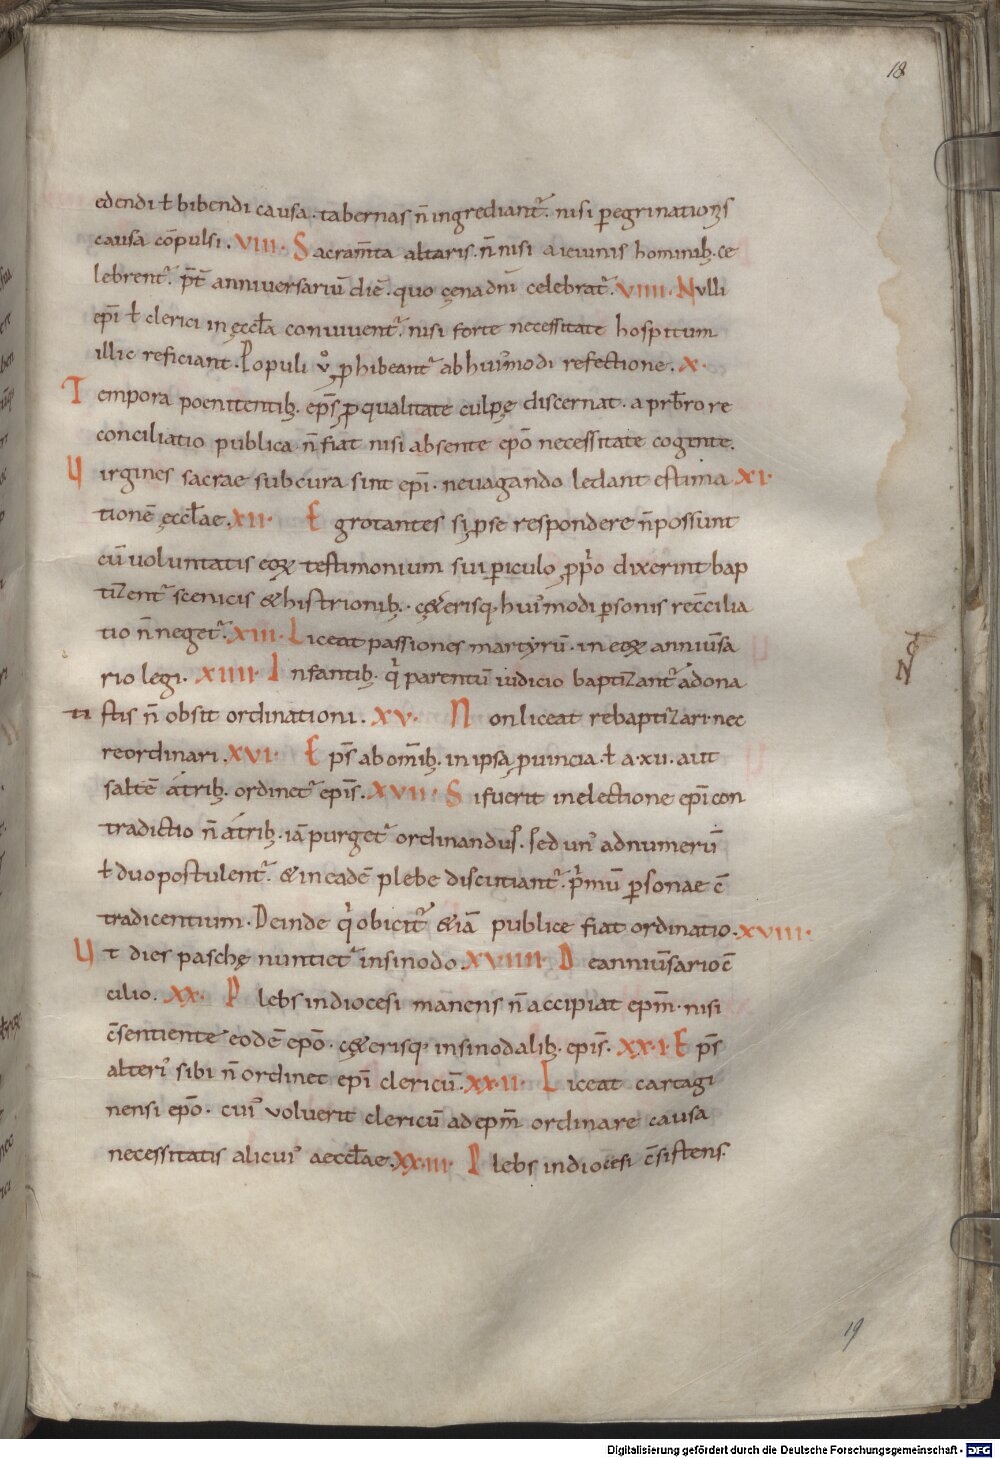 18
edendi ł bibendi causa · tabernas n̄ ingrediant᷑ · nisi ꝑegrinationis
causa cōpulsi · VIII · Sacram̄ta altaris · n̄ nisi a ieiunis hominib; · ce
lebrent᷑ · p̄t anniversariū diē · quo cęna dn̄i celebrat᷑ · VIIII · Nulli
ep̄i ł clerici in ęccła conviventur᷑ nisi forte necessitate hospitum
illic reficiant · Populi v̊ ꝓhibeant᷑ ab huiꝰmodi refectione · X ·
Tempora poenitentib; · ep̄s ꝓ qualitate culpę discernat · a prb̄ro re
conciliatio publica n̄ fiat nisi absente ep̄o necessitate cogente.
Virgines sacrae sub cura sint ep̄i · ne vagando ledant estima XI ·
tionē ęccłae · XII · Egrotantes si ꝑ se respondere n̄ possunt
cū voluntatis eoꝝ testimonium sui ꝑiculo ꝓprio dixerint bap
tizent᷑ scenicis & histrionib; · cę&erisq; huiꝰmodi ꝑsonis rec̄cilia
tio n̄ neget᷑ · XIII · Liceat passiones martyrū · in eoꝝ anniv̄sa
rio legi · XIIII · Infantib; · q̇ parentū iudicio baptizant᷑ a dona
tistis n̄ obsit ordinationi · XV · Non liceat rebaptizari · nec
reordinari · XVI · Ep̄s ab om̄ib; · in ipsa ꝓvincia · ł a · xii · aut
saltē a trib; · ordinet᷑ ep̄is · XVII · Si fuerit in electione ep̄i con
tradictio n̄ a trib; · iā purget᷑ ordinandus · sed unꝰ ad numerū
ł duo postulent᷑ · & in eadē plebe discutiant᷑ · p̓mū ꝑsonae c̄
tradicentium · Deinde q̇ obicit᷑ & iā publice fiat ordinatio · XVIII ·
Ut dies paschę nuntiet᷑ in sinodo · XVIIII · De anniv̄sario c̄
cilio · XX · Plebs in diocesi manens n̄ accipiat epm̄ · nisi
c̄sentiente eodē ep̄o · cę&erisq; in sinodalib; · ep̄is · XX·I · Ep̄s
alteriꝰ sibi n̄ ordinet ep̄i clericū · XX·II · Liceat cartagi
nensi ep̄o · cuiꝰ voluerit clericū ad epm̄ ordinare causa
necessitatis alicuiꝰ aeccłae · XX·III · Plebs in diocesi c̄sistens ·
19
Digitalisierung gefördert durch die Deutsche Forschungsgemeinschaft · DFG